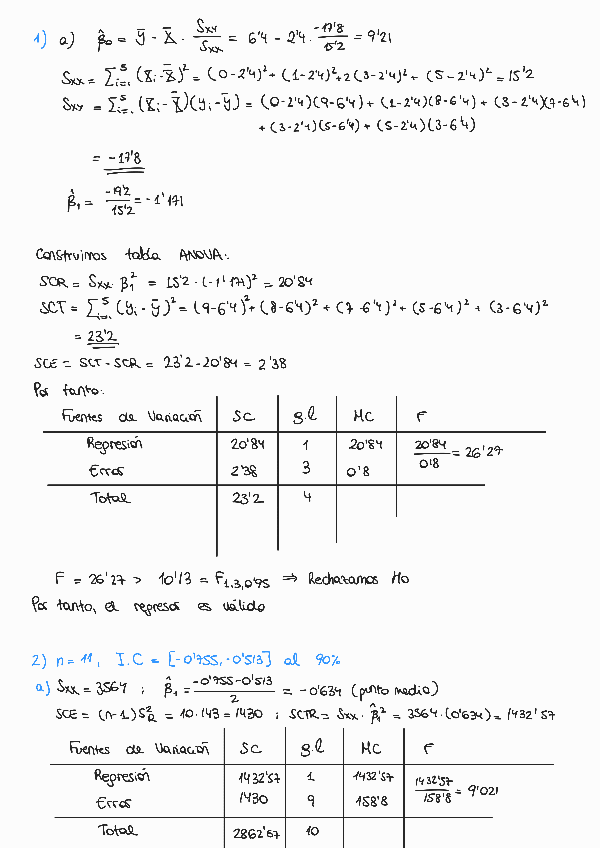 1) a) β̂₀ = ȳ - x̄ · Sxy/Sxx = 6'4 - 2'4 · -17'8/15'2 = 9'21
Sxx = Σᵢ₌₁⁵ (xᵢ - x̄)² = (0-2'4)² + (1-2'4)² + 2(3-2'4)² + (5-2'4)² = 15'2
Sxy = Σᵢ₌₁⁵ (xᵢ - x̄)(yᵢ - ȳ) = (0-2'4)(9-6'4) + (1-2'4)(8-6'4) + (3-2'4)(7-6'4)
+ (3-2'4)(5-6'4) + (5-2'4)(3-6'4)
= -17'8
β̂₁ = -17'2/15'2 = -1'171
Construimos tabla ANOVA:
SCR = Sxx · β̂₁² = 15'2 · (-1'171)² = 20'84
SCT = Σᵢ₌₁⁵ (yᵢ - ȳ)² = (9-6'4)² + (8-6'4)² + (7-6'4)² + (5-6'4)² + (3-6'4)²
= 23'2
SCE = SCT - SCR = 23'2 - 20'84 = 2'38
Por tanto:
Fuentes de Variación SC g.l MC F
Regresión 20'84 1 20'84 20'84/0'8 = 26'27
Error 2'38 3 0'8
Total 23'2 4
F = 26'27 > 10'13 = F₁,₃,₀'₉₅ ⇒ Rechazamos H₀
Por tanto, el regresor es válido
2) n = 11, I.C = [-0'755, -0'513] al 90%
a) Sxx = 3564 ; β̂₁ = -0'755-0'513/2 = -0'634 (punto medio)
SCE = (n-1)S²R = 10·143 = 1430 ; SCTR = Sxx · β̂₁² = 3564·(0'634) = 1432'57
Fuentes de Variación SC g.l MC F
Regresión 1432'57 1 1432'57 1432'57/158'8 = 9'021
Error 1430 9 158'8
Total 2862'67 10